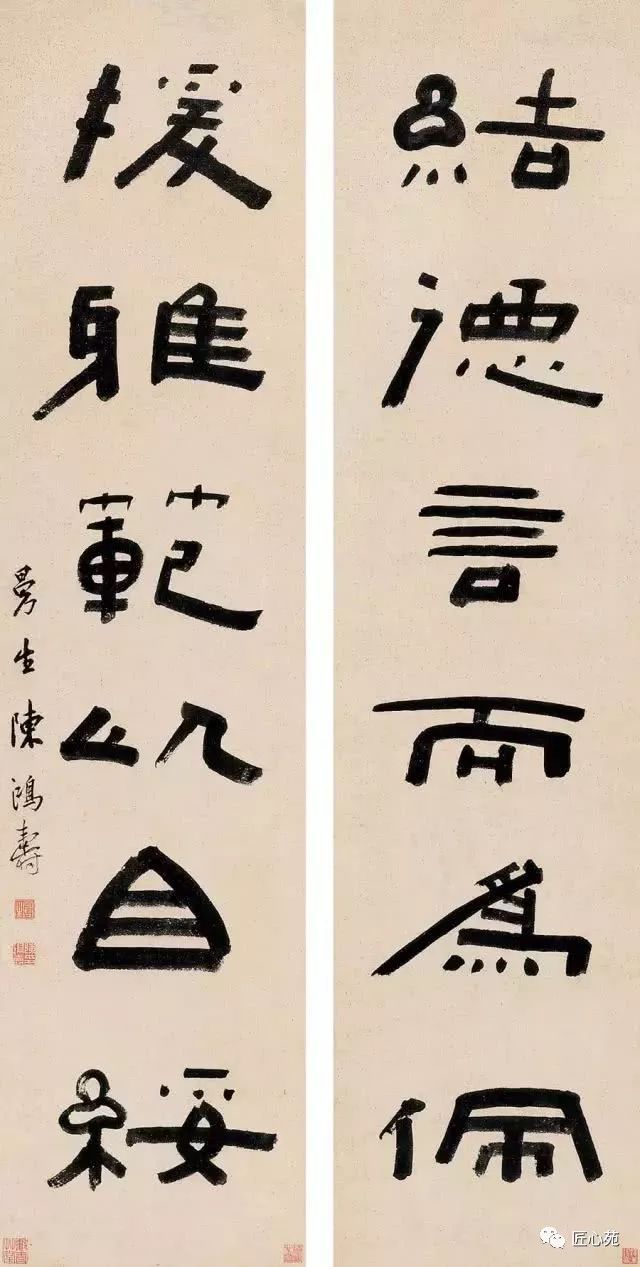 結德言而為佩
援雅範以自綏
曼生陳鴻壽
匠心苑